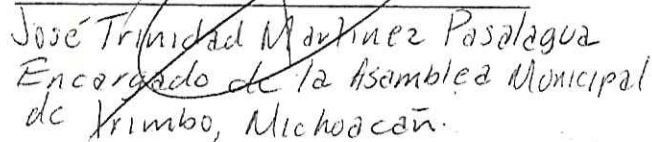 José Trinidad Martinez Pasalagua
Encargado de la Asamblea Municipal
de Irimbo, Michoacán.